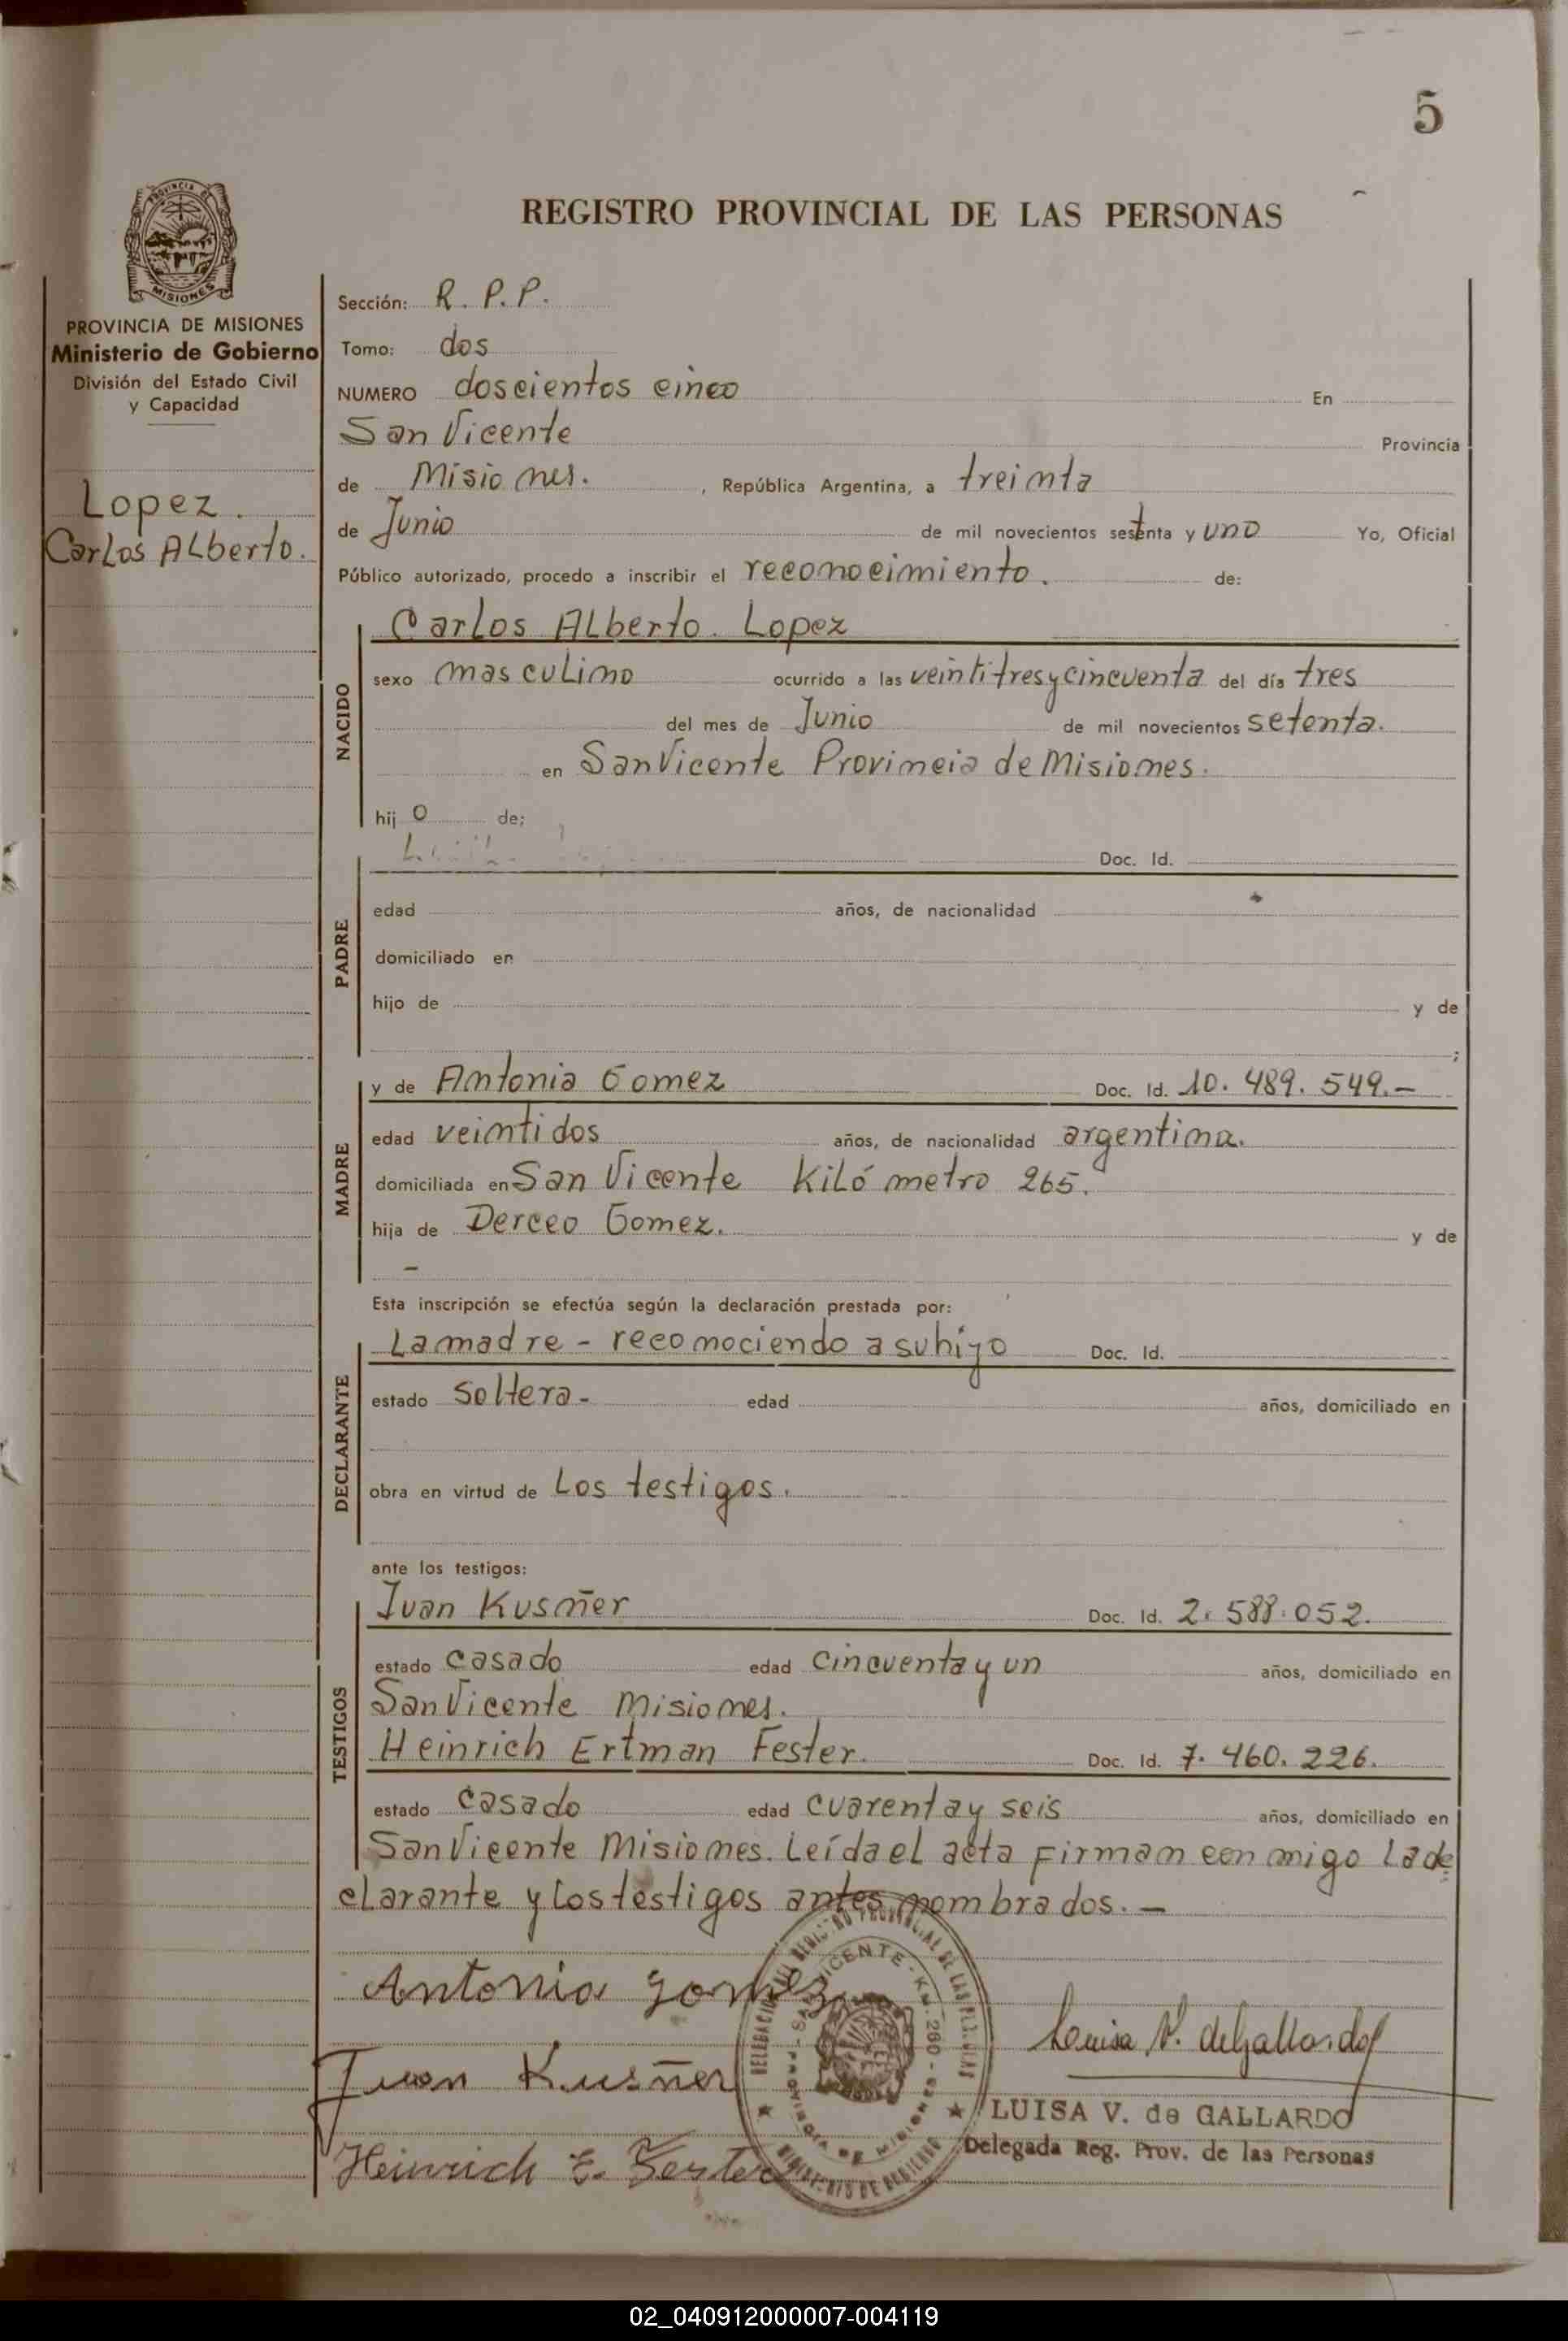 5
REGISTRO PROVINCIAL DE LAS PERSONAS
MISIONES
PROVINCIA DE MISIONES
Ministerio de Gobierno
División del Estado Civil
y Capacidad
Lopez.
Carlos Alberto.
Sección: R. P. P.
Tomo: dos
NUMERO doscientos cinco En
San Vicente Provincia
de Misiones. , República Argentina, a treinta
de Junio de mil novecientos setenta y uno Yo, Oficial
Público autorizado, procedo a inscribir el reconocimiento. de:
NACIDO
Carlos Alberto. Lopez
sexo masculino ocurrido a las veintitres y cincuenta del día tres
del mes de Junio de mil novecientos setenta.
en San Vicente Provincia de Misiones.
hij o de;
PADRE
Doc. Id.
edad años, de nacionalidad
domiciliado en
hijo de y de
;
MADRE
y de Antonia Gomez Doc. Id. 10. 489. 549.-
edad veintidos años, de nacionalidad argentina.
domiciliada en San Vicente Kilómetro 265.
hija de Derceo Gomez. y de
-
Esta inscripción se efectúa según la declaración prestada por:
DECLARANTE
La madre - reconociendo a su hijo Doc. Id.
estado soltera- edad años, domiciliado en
obra en virtud de Los testigos.
ante los testigos:
TESTIGOS
Juan Kusñer Doc. Id. 2. 588. 052.
estado casado edad cincuenta y un años, domiciliado en
San Vicente Misiones.
Heinrich Ertman Fester. Doc. Id. 7. 460. 226.
estado casado edad cuarenta y seis años, domiciliado en
San Vicente Misiones. Leída el acta firman conmigo la de
clarante y los testigos antes nombrados.-
Antonia Gomez
Juan Kusñer
Heinrich E. Fester
Luisa V. de Gallardo
LUISA V. de GALLARDO
Delegada Reg. Prov. de las Personas
02_040912000007-004119